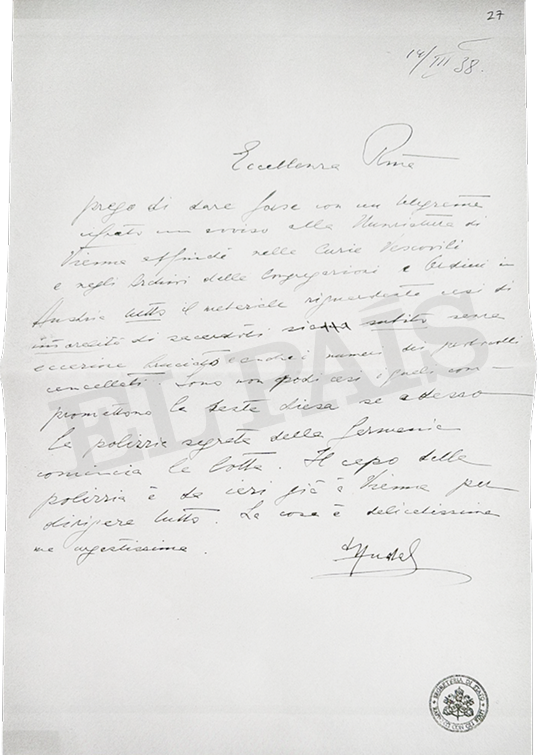 27
14/III 38.
Eccellenza Rma
prego di dare forse con un telegramma
cifrato un avviso alla Nunziatura di
Vienna affinchè nelle Curie Vescovili
e negli Archivi delle Congregazioni e Ordini in
Austria tutto il materiale riguardante casi di
immoralità di sacerdoti sia subito senza
eccezione bruciato e anche i numeri di protocolli
cancellati. Sono non pochi casi i quali com-
promettono la Santa Chiesa se adesso
la polizzia segreta della Germania
comincia la lotta. Il capo della
polizzia è da ieri già a Vienna per
dirigere tutto. La cosa è delicatissima
ma urgentissima.
+Hudal
EL PAÍS
SEGRETERIA DI STATO